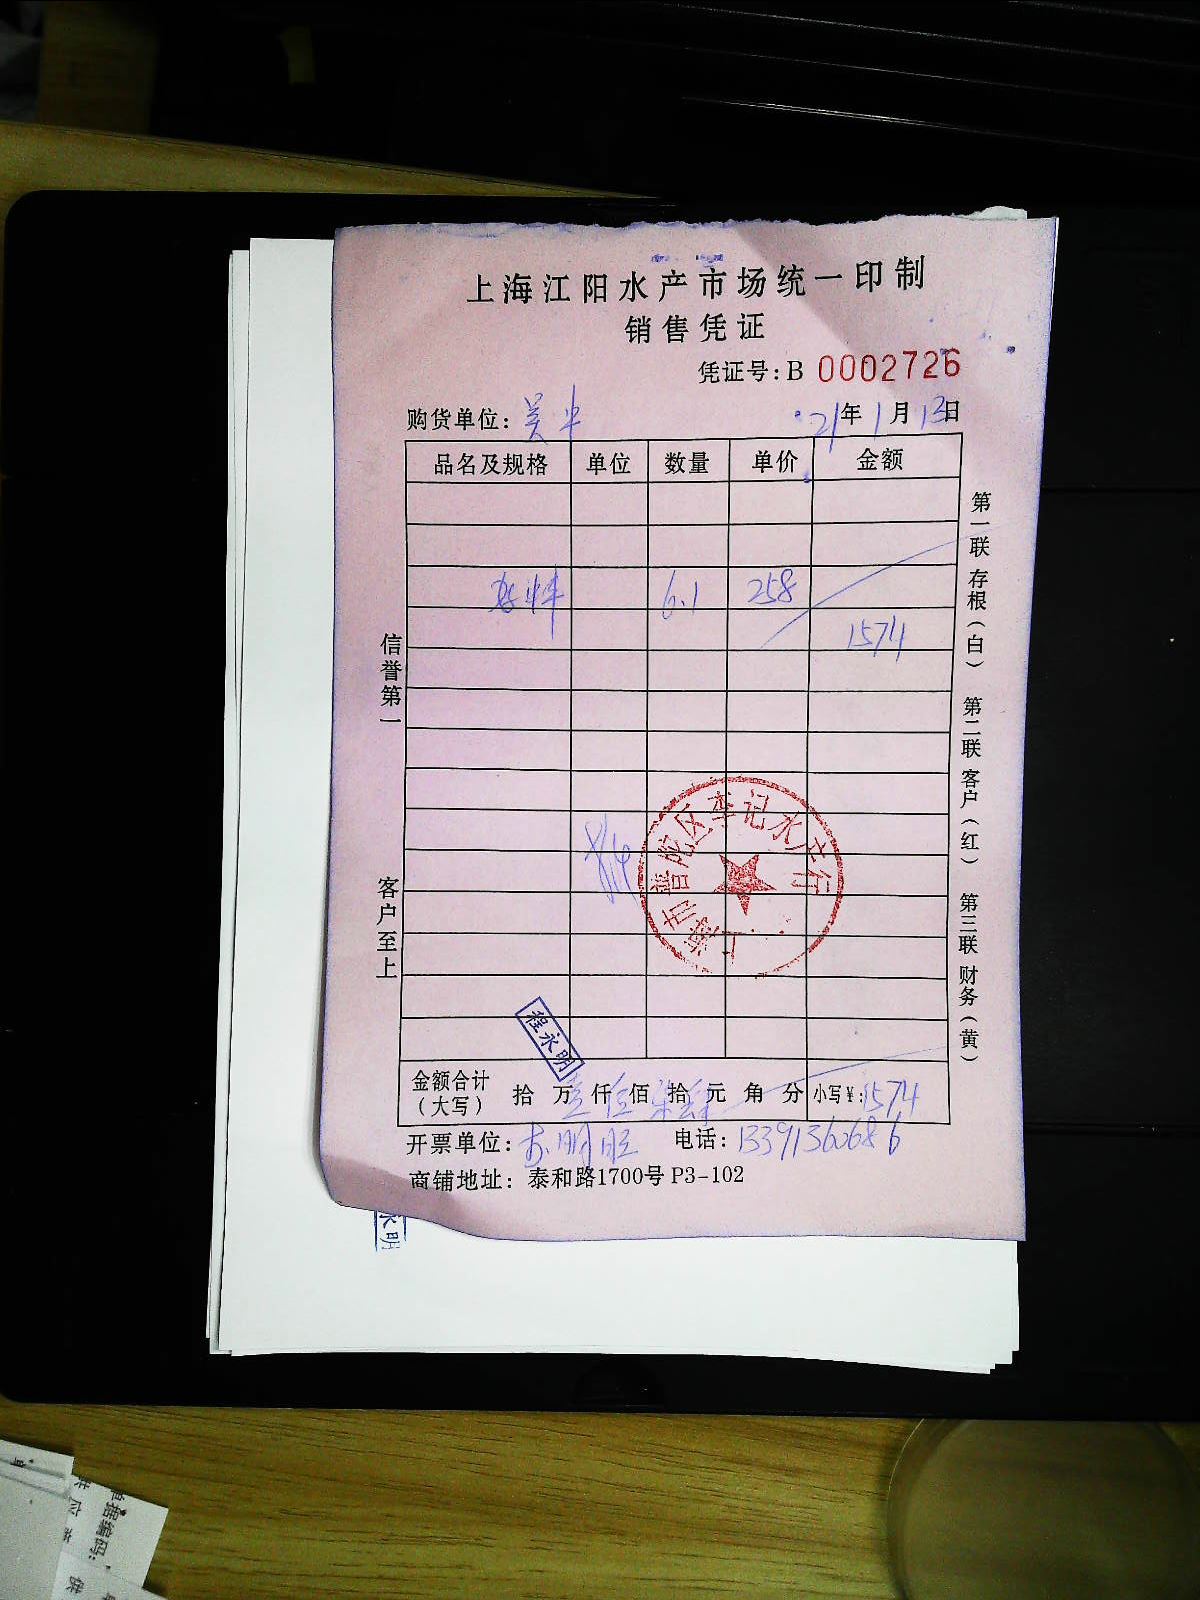 上海江阳水产市场统一印制
销售凭证
凭证号:B 0002726
购货单位: 吴中 21年1月13日
品名及规格 单位 数量 单价 金额
6.1 258
1574
信誉第一
客户至上
第一联 存根(白) 第二联 客户(红) 第三联 财务(黄)
上海市普陀区李记水产行
程永明
金额合计(大写) 拾 万 壹仟 伍佰 柒拾 肆元 角 分 小写¥:1574
开票单位: 电话:13391360686
商铺地址: 泰和路1700号 P3-102
永明
单据编码:
供应商
供